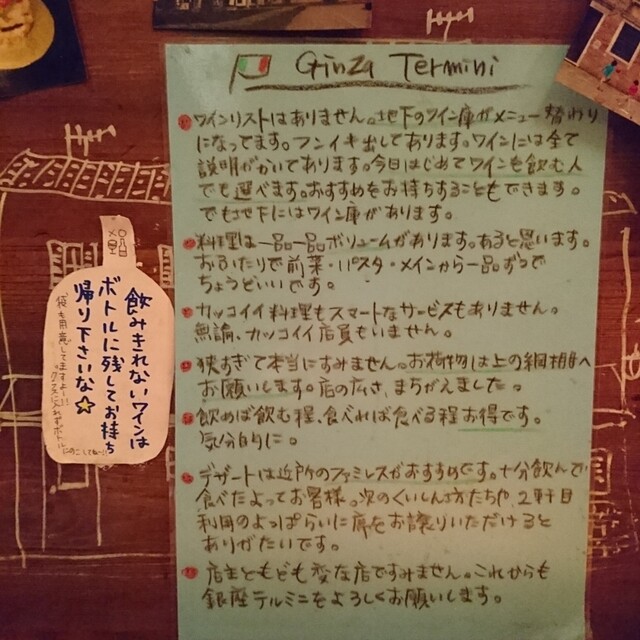 Ginza Termini
ワインリストはありません。地下のワイン庫がメニュー替わり
になってます。フンイキ出してあります。ワインには全て
説明がかいてあります。今日はじめてワインを飲む人
でも選べます。おすすめをお持ちすることもできます。
でも地下にはワイン庫があります。
料理は一品一品ボリュームがあります。あると思います。
おふたりで前菜・パスタ・メインから一品ずつで
ちょうどいいです。
カッコイイ料理もスマートなサービスもありません。
無論、カッコイイ店員もいません。
狭すぎて本当にすみません。お荷物は上の網棚へ
お願いします。店の広さ、まちがえました。
飲めば飲む程、食べれば食べる程お得です。
気分的に。
デザートは近所のファミレスがおすすめです。十分飲んで
食べたよってお客様。次のくいしん坊たちや、2軒目
利用のよっぱらいに席をお譲りいただけると
ありがたいです。
店主ともども変な店ですみません。これからも
銀座テルミニをよろしくお願いします。
飲みきれないワインは
ボトルに残してお持ち
帰り下さいな☆
袋も用意してますよー!!